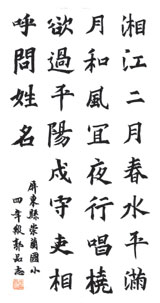 湘江二月春水平滿
月和風宜夜行唱橈
欲過平陽戍守吏相
呼問姓名
屏東縣崇蘭國小
四年級